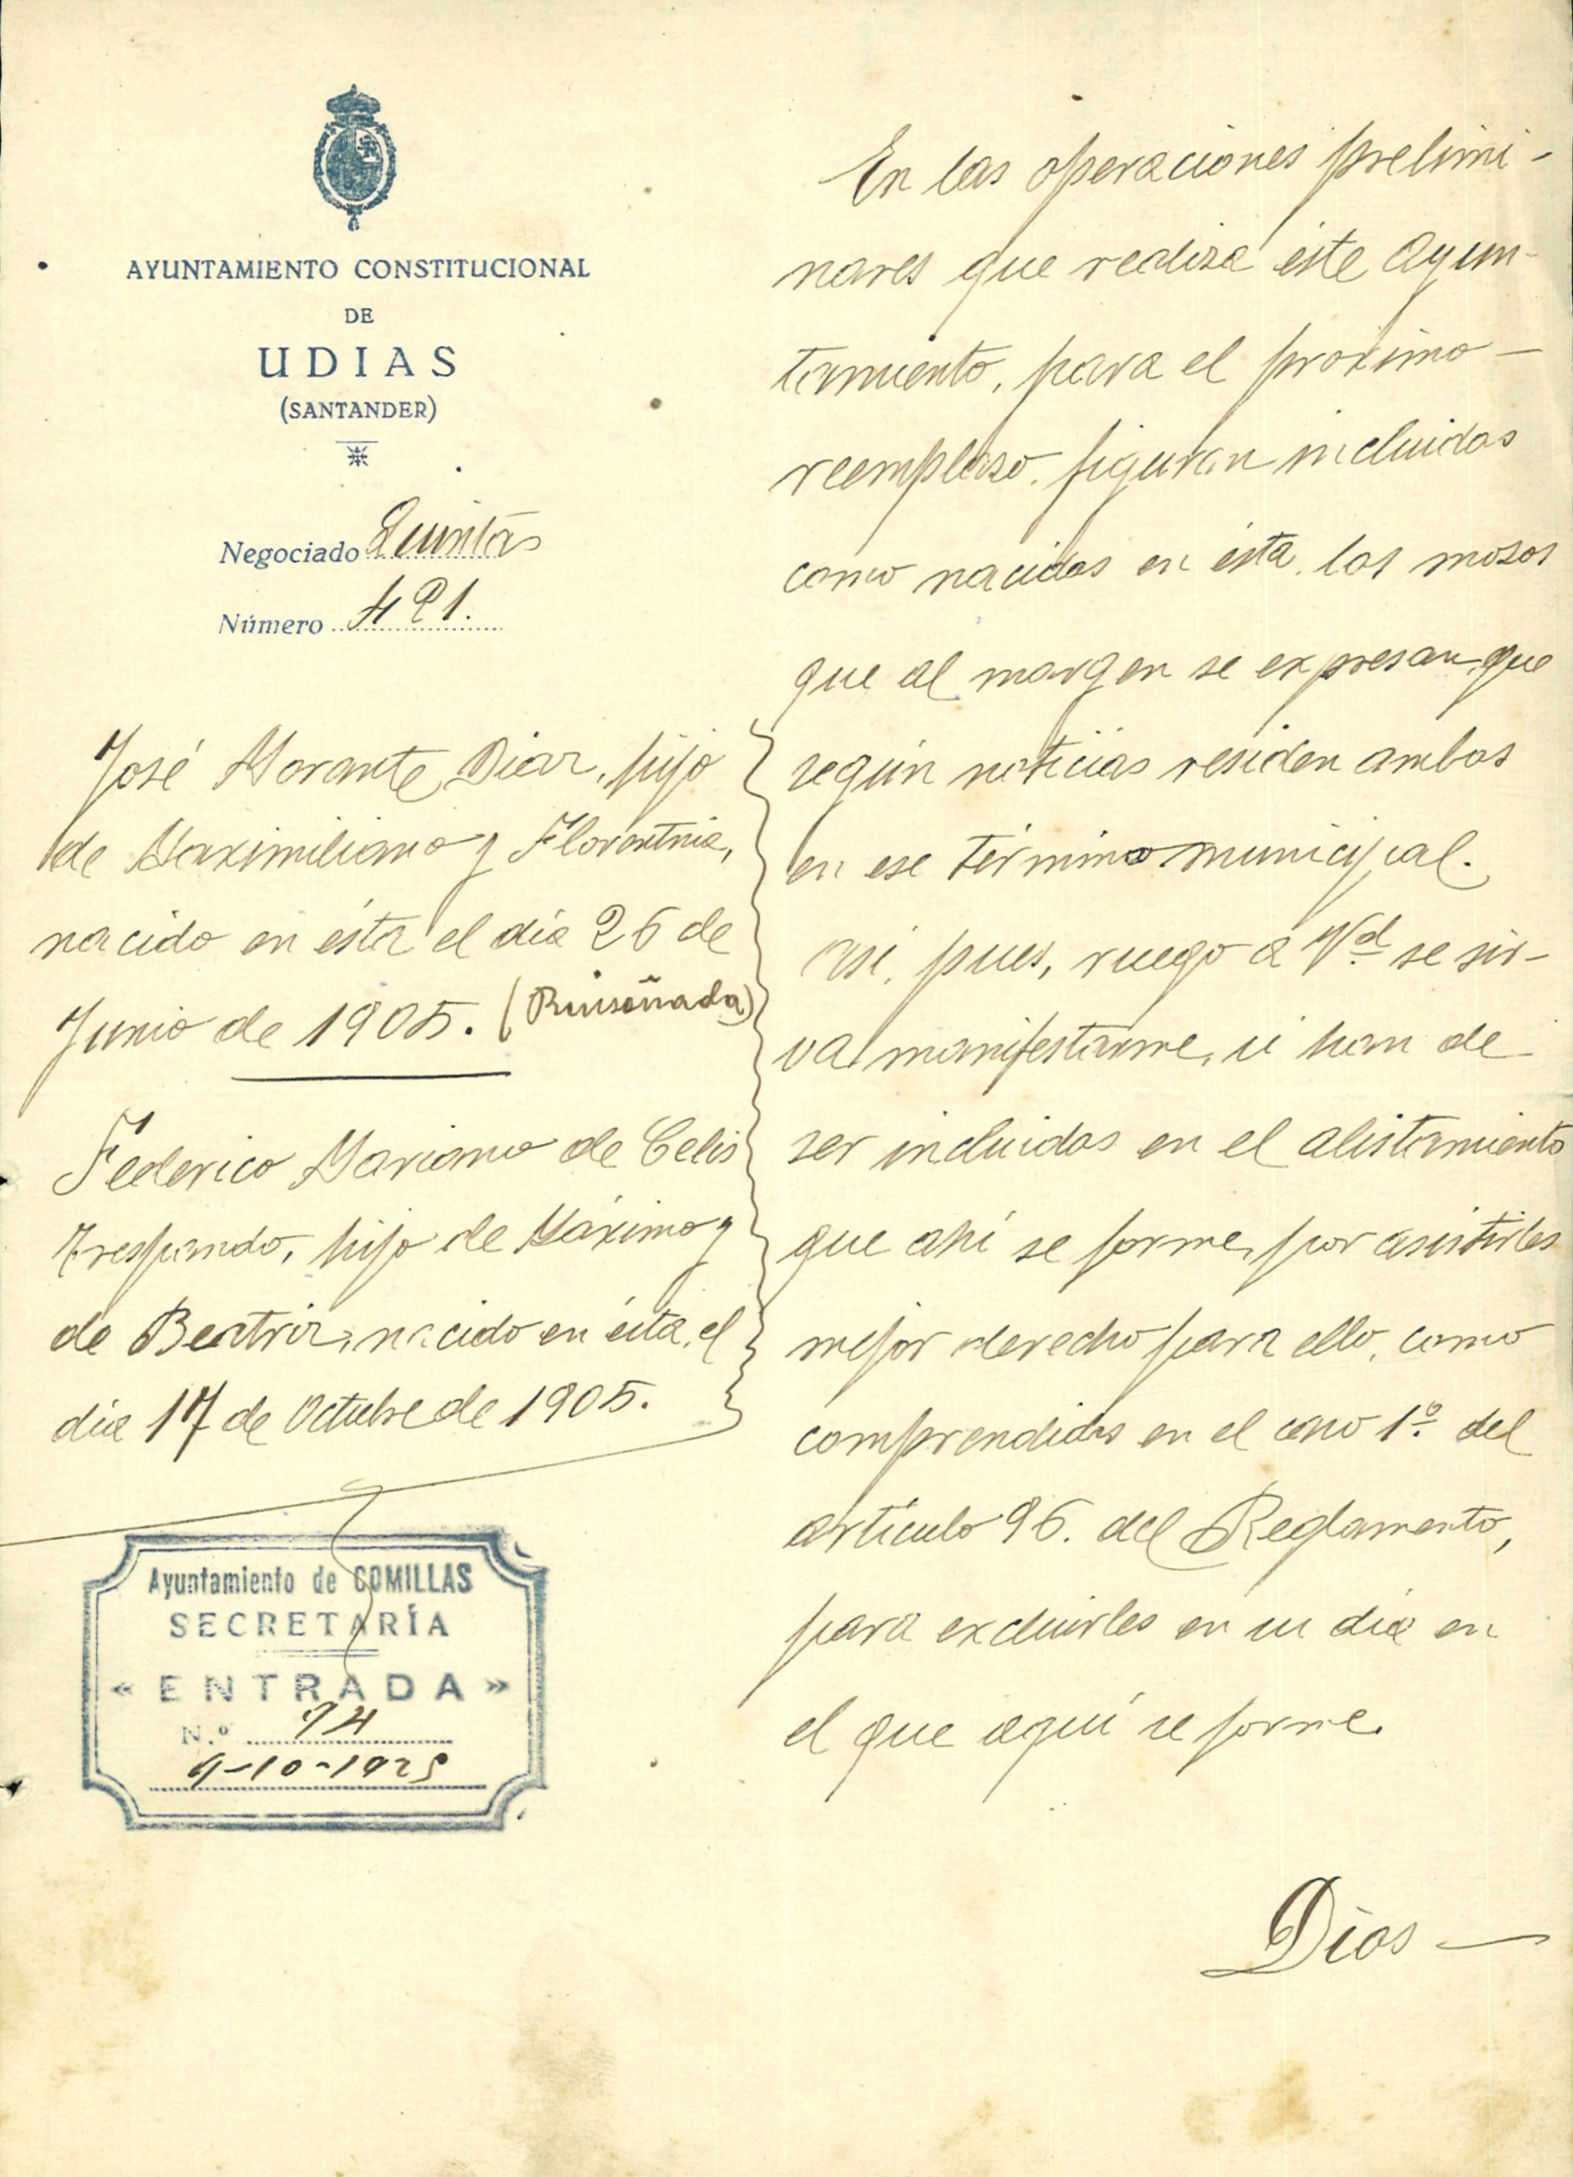 AYUNTAMIENTO CONSTITUCIONAL
DE
UDIAS
(SANTANDER)
Negociado Quintas
Número 421.
José Morante Diaz, hijo
de Maximiliano y Florentnia,
nacido en ésta el día 26 de
Junio de 1905. (Ruiseñada)
Federico Mariano de Celis
Trespando, hijo de Máximo y
de Beatriz, nacido en ésta, el
día 17 de Octubre de 1905.
Ayuntamiento de COMILLAS
SECRETARÍA
« ENTRADA »
N.º 94
9-10-1925
En las operaciones prelimi-
nares que realiza este Ayun-
tamiento, para el próximo
reemplazo, figuran incluidos
como nacidos en ésta, los mozos
que al margen se expresan, que
según noticias residen ambos
en ese término municipal.
Asi, pues, ruego a Vd se sir-
va manifestarme, si han de
ser incluidos en el alistamiento
que ahí se forme, por asistirles
mejor derecho para ello, como
comprendidos en el caso 1º del
artículo 96. del Reglamento,
para excluirles en su día en
el que aquí se forme.
Dios